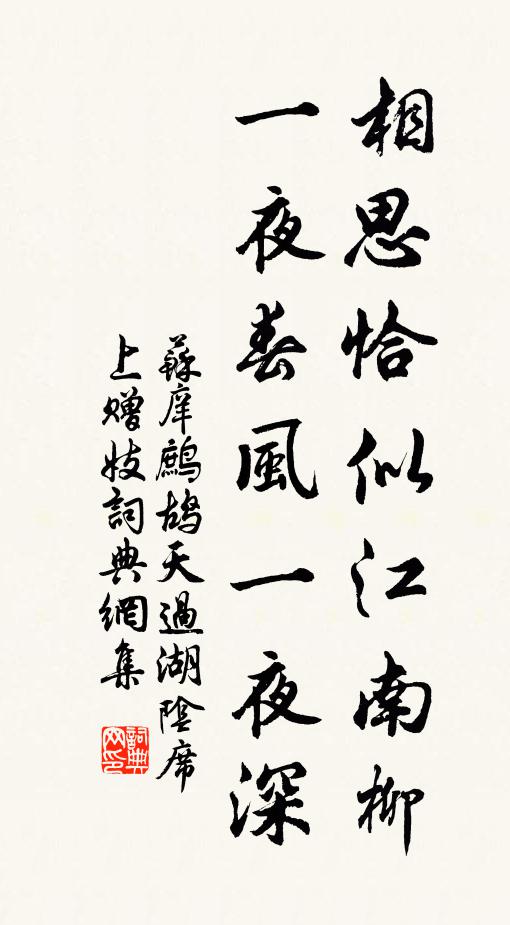 相思恰似江南柳
一夜春風一夜深
蘇庠鷓鴣天過湖陰席
上贈妓詞典網集
詞典網印